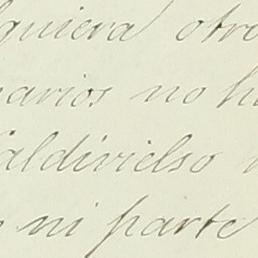 quiera otro
arios no h
aldivielso
ni parte